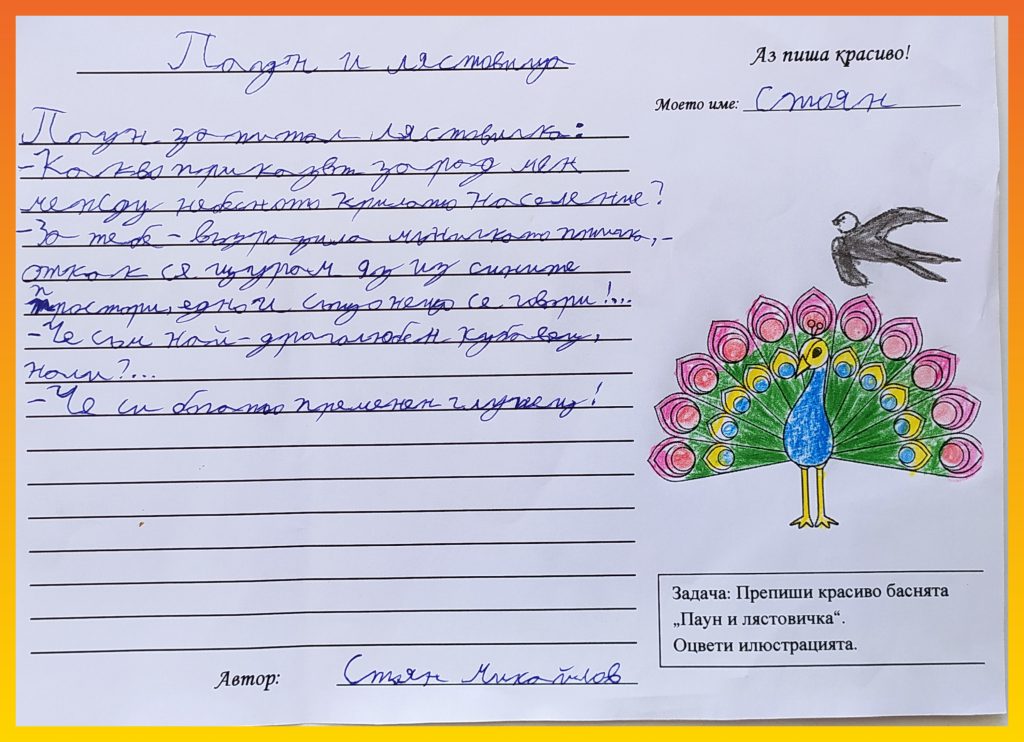 Паун и лястовица
Аз пиша красиво!
Моето име: Стоян
Паун запитал лястовичка:
-Какво приказвт зарад мен
между небесното крилато население?
-За тебе - възразила мъничката птичка, -
откак се щурам аз из сините
простори, едно и също нещо се говори!...
-Че съм най-драголюбен хубавец,
нали?...
-Че си богато пременен глупец!
Задача: Препиши красиво баснята
„Паун и лястовичка“.
Оцвети илюстрацията.
Автор: Стоян Михайлов